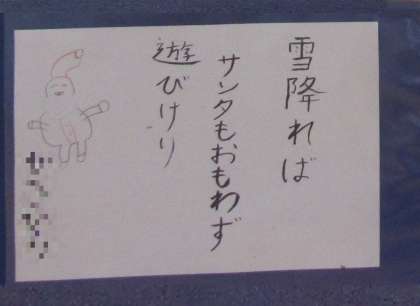 雪降れば
サンタもおもわず
遊びけり